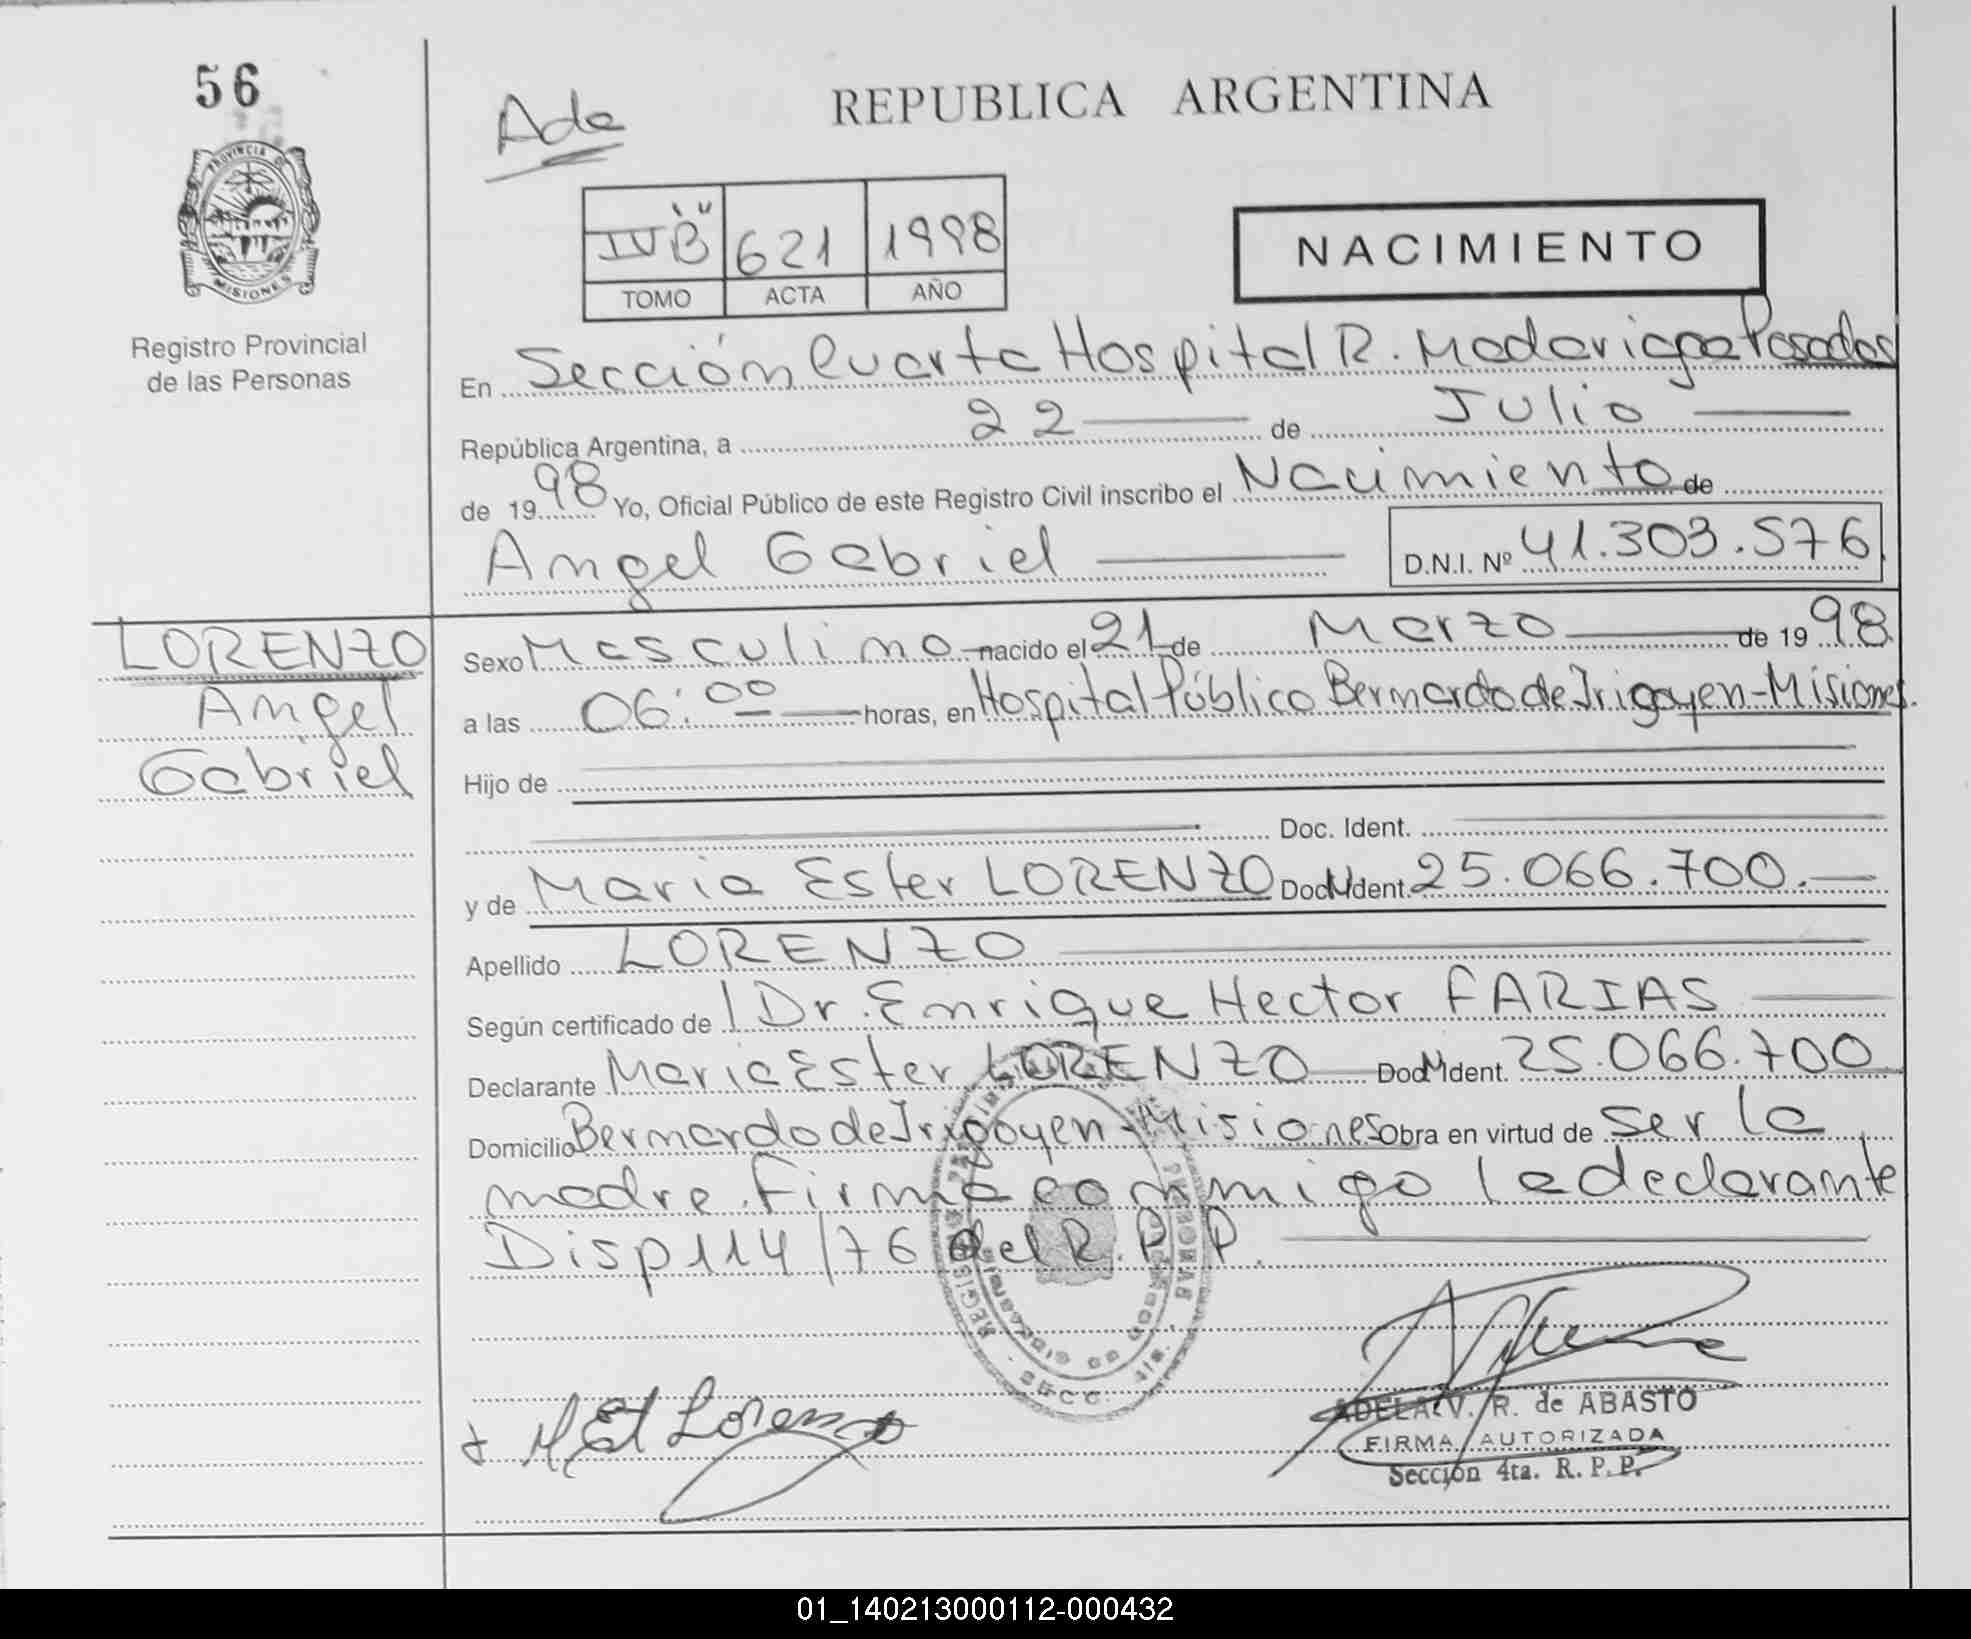 56
PROVINCIA DE
MISIONES
Registro Provincial
de las Personas
Ade
REPUBLICA ARGENTINA
IV "B" 621 1998
TOMO ACTA AÑO
NACIMIENTO
En Sección Cuarta Hospital R. Madariaga Posadas
República Argentina, a 22 de Julio
de 19 98 Yo, Oficial Público de este Registro Civil inscribo el Nacimiento de
Angel Gabriel D.N.I. Nº 41.303.576
LORENZO
Angel
Gabriel
Sexo Masculino nacido el 21 de Marzo de 19 98
a las 06:00 horas, en Hospital Público Bernardo de Irigoyen-Misiones.
Hijo de
Doc. Ident.
y de Maria Ester LORENZO Doc. Ident. 25.066.700.
Apellido LORENZO
Según certificado de Dr. Enrique Hector FARIAS
Declarante Maria Ester LORENZO Doc. Ident. 25.066.700
Domicilio Bernardo de Irigoyen-Misiones Obra en virtud de ser la
madre. Firma conmigo la declarante
Disp 114/76 del R.P.P.
SECC. 4ta.
M Est Lorenzo
ADELA V. R. de ABASTO
FIRMA AUTORIZADA
Sección 4ta. R. P. P.
01_140213000112-000432